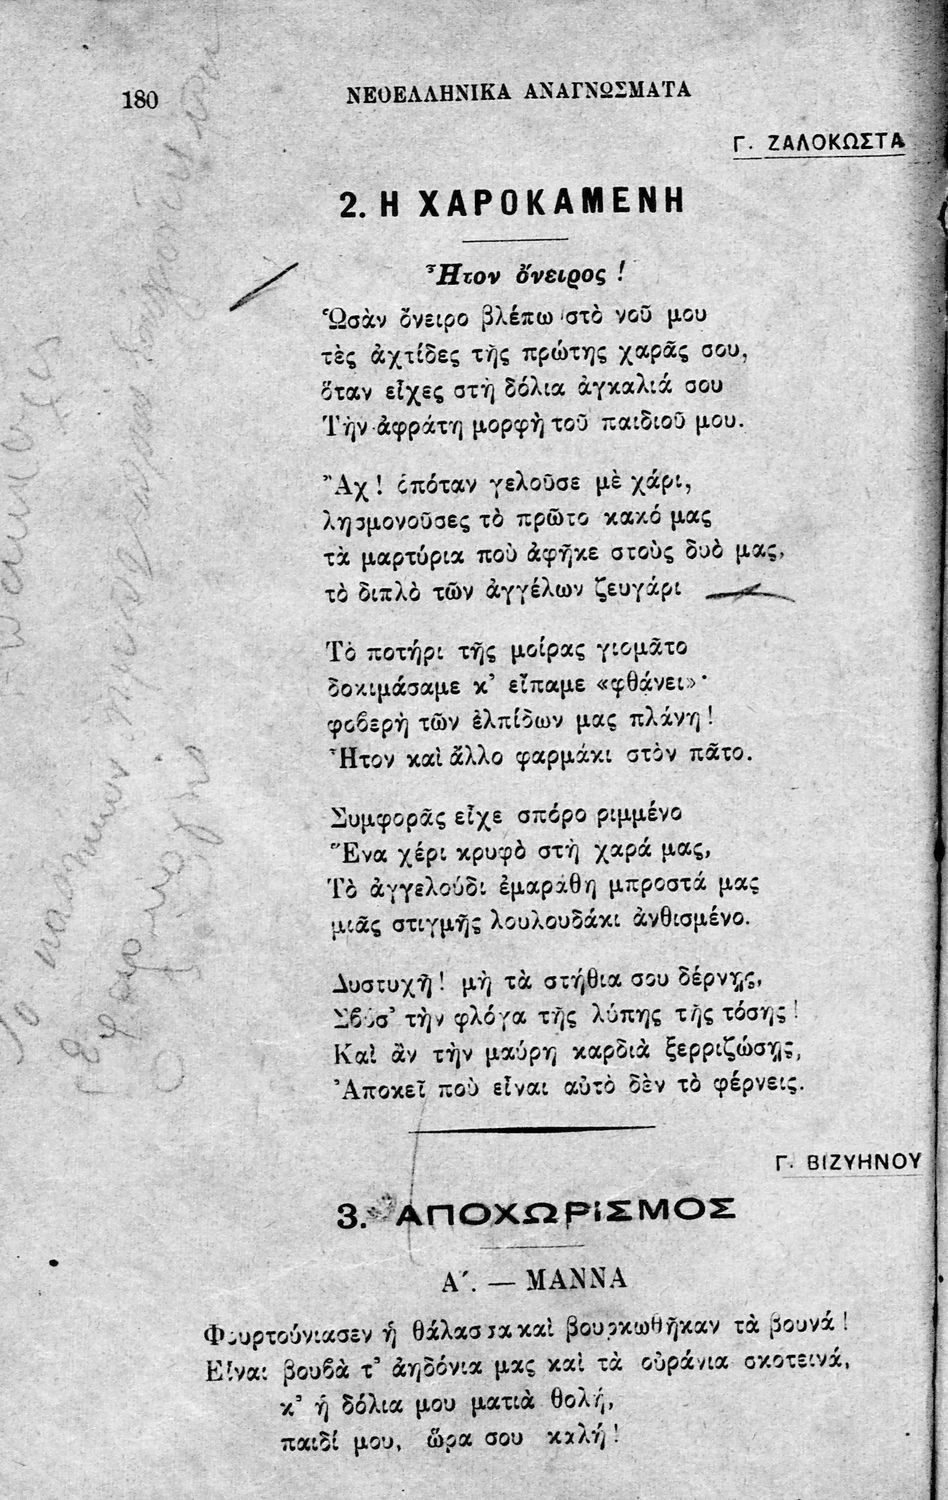 180
ΝΕΟΕΛΛΗΝΙΚΑ ΑΝΑΓΝΩΣΜΑΤΑ
Γ. ΖΑΛΟΚΩΣΤΑ
2. Η ΧΑΡΟΚΑΜΕΝΗ
Ἦτον ὄνειρος !
Ὡσὰν ὄνειρο βλέπω στὸ νοῦ μου
τὲς ἀχτίδες τῆς πρώτης χαρᾶς σου,
ὅταν εἶχες στὴ δόλια ἀγκαλιά σου
Τὴν ἀφράτη μορφὴ τοῦ παιδιοῦ μου.
Ἂχ! ὁπόταν γελοῦσε μὲ χάρι,
λησμονοῦσες τὸ πρῶτο κακό μας
τὰ μαρτύρια ποὺ ἀφῆκε στοὺς δυὸ μας,
τὸ διπλὸ τῶν ἀγγέλων ζευγάρι
Τὸ ποτήρι τῆς μοίρας γιομᾶτο
δοκιμάσαμε κ' εἴπαμε «φθάνει»·
φοβερὴ τῶν ἐλπίδων μας πλάνη!
Ἦτον καὶ ἄλλο φαρμάκι στὸν πᾶτο.
Συμφορᾶς εἶχε σπόρο ριμμένο
Ἕνα χέρι κρυφὸ στὴ χαρά μας,
Τὸ ἀγγελούδι ἐμαράθη μπροστά μας
μιᾶς στιγμῆς λουλουδάκι ἀνθισμένο.
Δυστυχῆ! μὴ τὰ στήθια σου δέρνῃς,
Σβύσ' τὴν φλόγα τῆς λύπης τῆς τόσης!
Καὶ ἂν τὴν μαύρη καρδιὰ ξερριζώσῃς,
Ἀποκεῖ ποὺ εἶναι αὐτὸ δὲν τὸ φέρνεις.
Γ. ΒΙΖΥΗΝΟΥ
3. ΑΠΟΧΩΡΙΣΜΟΣ
Α΄. — ΜΑΝΝΑ
Φουρτούνιασεν ἡ θάλασσα καὶ βουρκωθῆκαν τὰ βουνά!
Εἶναι βουβὰ τ' ἀηδόνια μας καὶ τὰ οὐράνια σκοτεινά,
κ' ἡ δόλια μου ματιὰ θολή,
παιδί μου, ὥρα σου καλή!